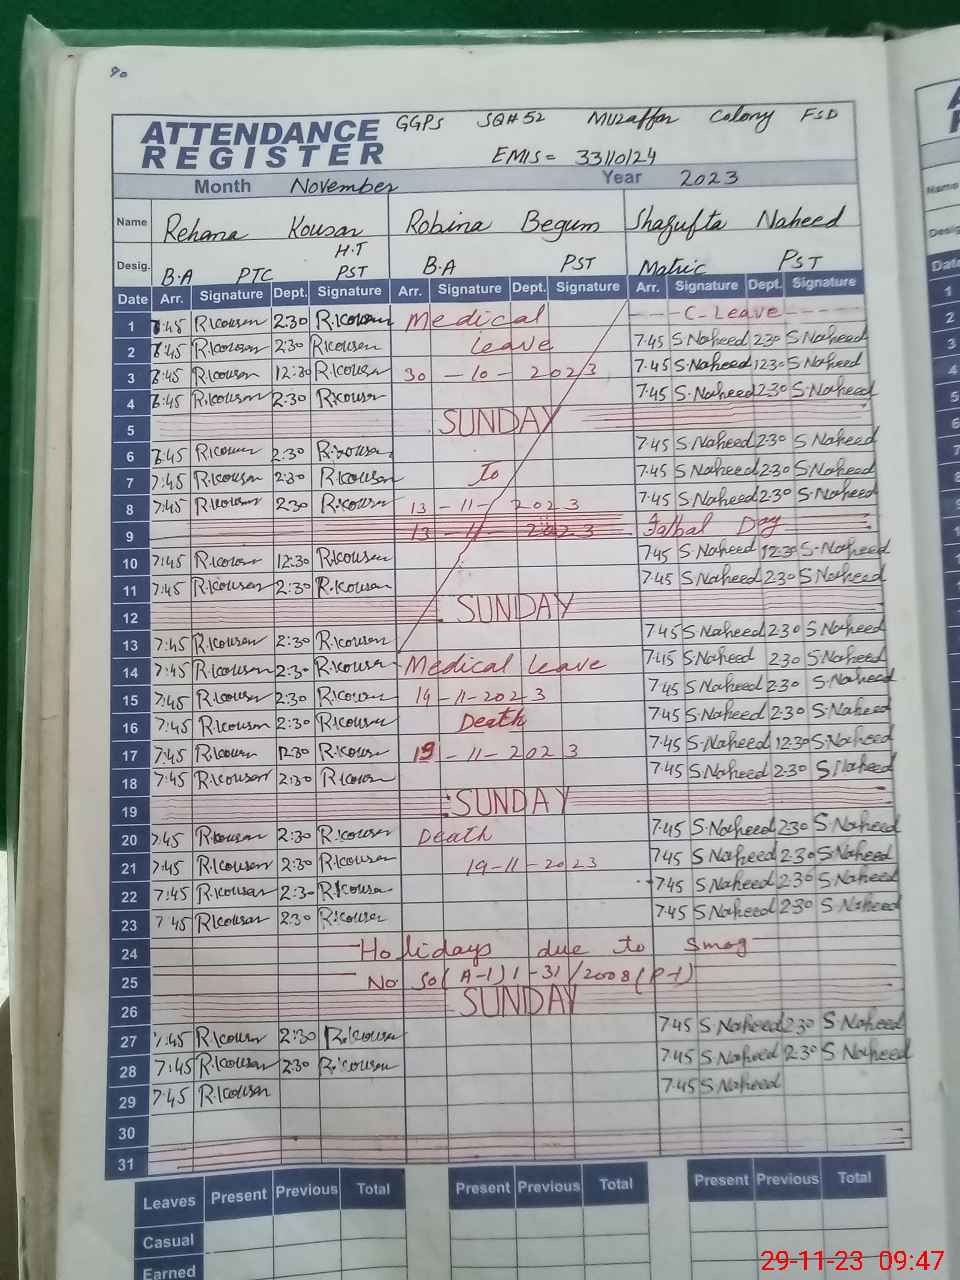 90
ATTENDANCE REGISTER
GGPS SQ# 52 Muzaffar Colony FSD
EMIS = 33110124
Month November Year 2023
Name Rehana Kousar Robina Begum Shagufta Naheed
H.T
Desig. B.A PTC PST B.A PST Matric PST
Date Arr. Signature Dept. Signature Arr. Signature Dept. Signature Arr. Signature Dept. Signature
1 7:45 R.kousar 2:30 R.kousar Medical C-Leave
2 7:45 R.kousar 2:30 R.kousar Leave 7:45 S.Naheed 2:30 S.Naheed
3 8:45 R.kousar 12:30 R.kousar 30-10-2023 7:45 S.Naheed 12:30 S.Naheed
4 8:45 R.kousar 2:30 R.kousar 7:45 S.Naheed 2:30 S.Naheed
5 SUNDAY
6 8:45 R.kousar 2:30 R.kousar 7:45 S.Naheed 2:30 S.Naheed
7 7:45 R.kousar 2:30 R.kousar To 7:45 S.Naheed 2:30 S.Naheed
8 7:45 R.kousar 2:30 R.kousar 13-11-2023 7:45 S.Naheed 2:30 S.Naheed
9 13-11-2023 Day
10 7:45 R.kousar 12:30 R.kousar 7:45 S.Naheed 12:30 S.Naheed
11 7:45 R.kousar 2:30 R.kousar 7:45 S.Naheed 2:30 S.Naheed
12 SUNDAY
13 7:45 R.kousar 2:30 R.kousar 7:45 S.Naheed 2:30 S.Naheed
14 7:45 R.kousar 2:30 R.kousar Medical leave 7:45 S.Naheed 2:30 S.Naheed
15 7:45 R.kousar 2:30 R.kousar 14-11-2023 7:45 S.Naheed 2:30 S.Naheed
16 7:45 R.kousar 2:30 R.kousar Death 7:45 S.Naheed 2:30 S.Naheed
17 7:45 R.kousar 12:30 R.kousar 19-11-2023 7:45 S.Naheed 12:30 S.Naheed
18 7:45 R.kousar 2:30 R.kousar 7:45 S.Naheed 2:30 S.Naheed
19 SUNDAY
20 7:45 R.kousar 2:30 R.kousar Death 7:45 S.Naheed 2:30 S.Naheed
21 7:45 R.kousar 2:30 R.kousar 19-11-2023 7:45 S.Naheed 2:30 S.Naheed
22 7:45 R.kousar 2:30 R.kousar 7:45 S.Naheed 2:30 S.Naheed
23 7:45 R.kousar 2:30 R.kousar 7:45 S.Naheed 2:30 S.Naheed
24 Holidays due to Smog
25 No SO(A-1) 1-31/2008(P-1)
26 SUNDAY
27 7:45 R.kousar 2:30 R.kousar 7:45 S.Naheed 2:30 S.Naheed
28 7:45 R.kousar 2:30 R.kousar 7:45 S.Naheed 2:30 S.Naheed
29 7:45 R.kousar 7:45 S.Naheed
30
31
Leaves Present Previous Total Present Previous Total Present Previous Total
Casual
Earned
29-11-23 09:47